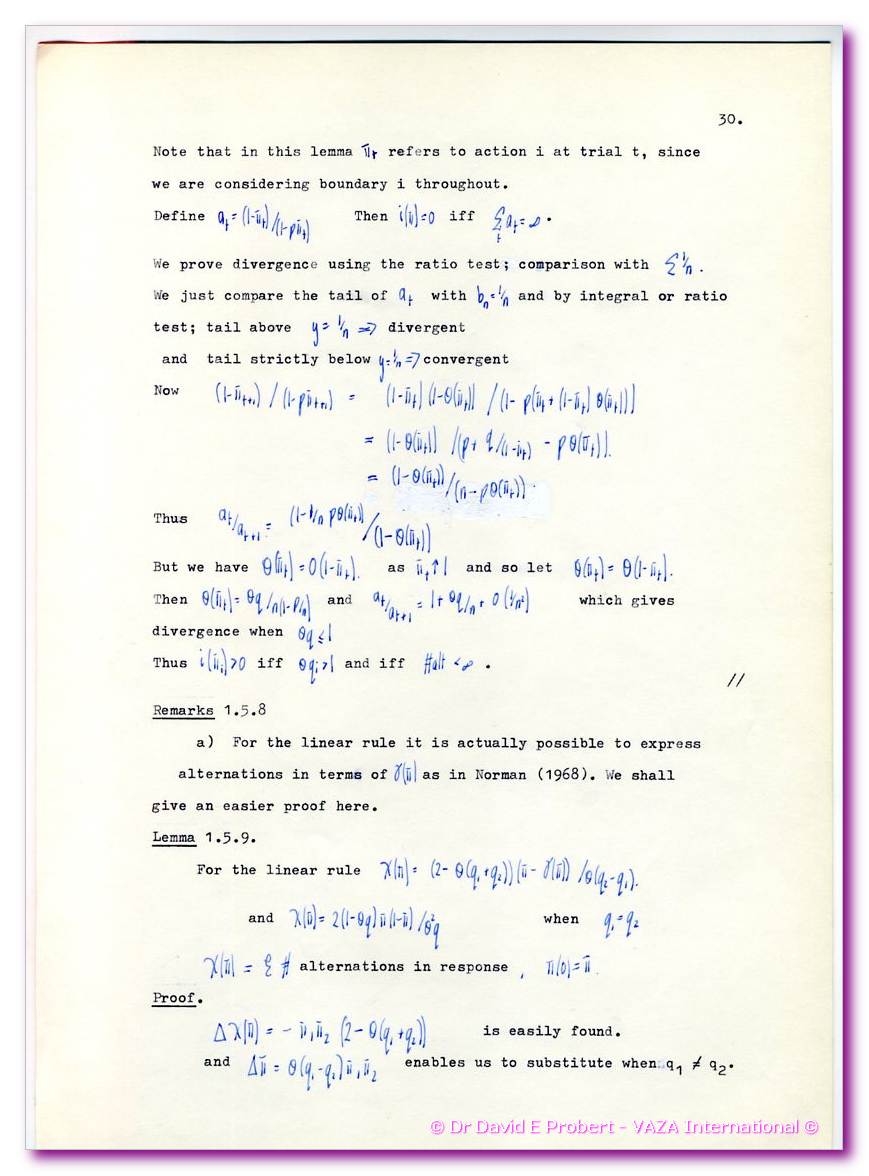 30.
Note that in this lemma π̄ₜ refers to action i at trial t, since
we are considering boundary i throughout.
Define aₜ = (1-π̄ₜ)/(1-pπ̄ₜ) Then i(π̄)=0 iff Σₜ aₜ = ∞.
We prove divergence using the ratio test; comparison with Σ 1/n.
We just compare the tail of aₜ with bₙ=1/n and by integral or ratio
test; tail above y = 1/n ⇒ divergent
and tail strictly below y=1/n ⇒ convergent
Now (1-π̄ₜ₊₁) / (1-pπ̄ₜ₊₁) = (1-π̄ₜ)(1-θ(π̄ₜ)) / (1- p(π̄ₜ + (1-π̄ₜ) θ(π̄ₜ)))
= (1-θ(π̄ₜ)) / (p+ q/(1-π̄ₜ) - pθ(π̄ₜ)).
= (1-θ(π̄ₜ))/(n-pθ(π̄ₜ))
Thus aₜ/aₜ₊₁ = (1-1/n pθ(π̄ₜ))/(1-θ(π̄ₜ))
But we have θ(π̄ₜ) = O(1-π̄ₜ). as π̄ₜ↑1 and so let θ(π̄ₜ) = θ(1-π̄ₜ).
Then θ(π̄ₜ) = θq/n(1-p/n) and aₜ/aₜ₊₁ = 1+ θq/n + O(1/n²) which gives
divergence when θq ≤ 1
Thus i(π̄ᵢ)>0 iff θqᵢ>1 and iff #alt < ∞ .
//
Remarks 1.5.8
a) For the linear rule it is actually possible to express
alternations in terms of γ(π̄) as in Norman (1968). We shall
give an easier proof here.
Lemma 1.5.9.
For the linear rule χ(π̄) = (2- θ(q₁+q₂))(π̄ - γ(π̄)) /θ(q₂-q₁).
and χ(π̄) = 2(1-θq)π̄(1-π̄)/θ²q when q₁=q₂
χ(π̄) = ℰ # alternations in response , π(0)=π̄.
Proof.
Δχ(π̄) = - π̄₁π̄₂ (2- θ(q₁+q₂)) is easily found.
and Δπ̄ = θ(q₁-q₂)π̄₁π̄₂ enables us to substitute when q₁ ≠ q₂.
© Dr David E Probert - VAZA International ©